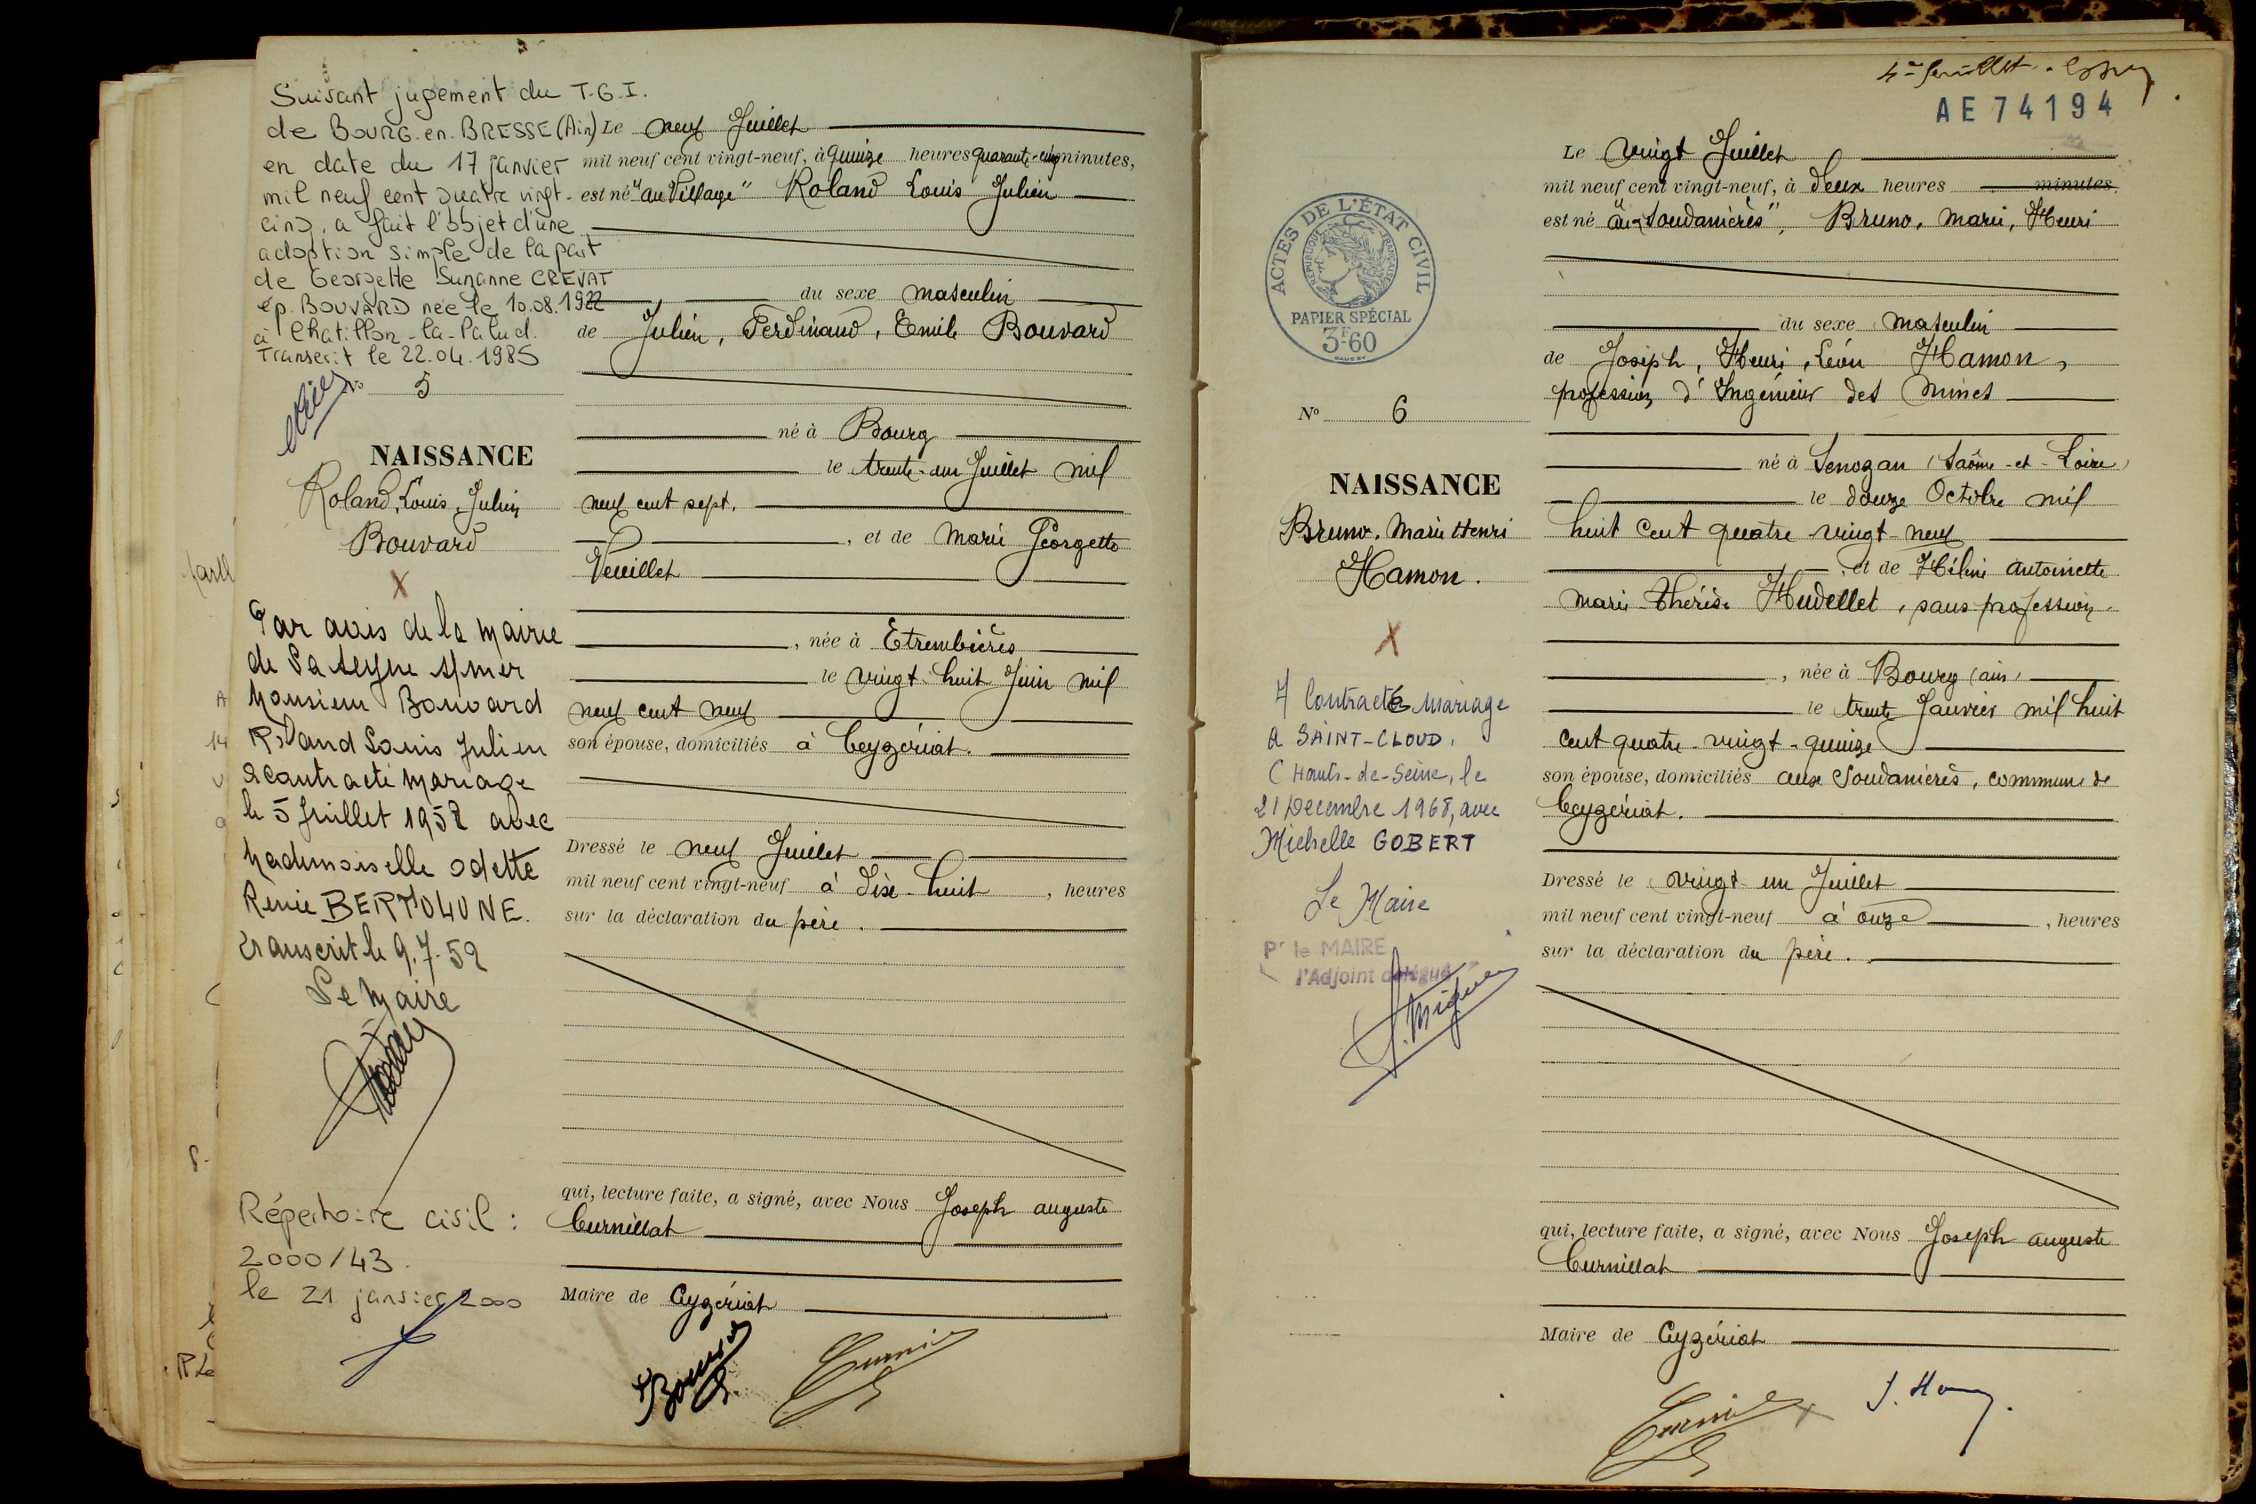 Suivant jugement du T.G.I.
de BOURG-en-BRESSE (Ain)
en date du 17 janvier
mil neuf cent quatre vingt-
cinq, a fait l'objet d'une
adoption simple de la part
de Georgette Suzanne CREVAT
ép. BOUVARD née le 10.08.1922
à Chatillon-la-Palud.
Transcrit le 22.04.1985
No 5
NAISSANCE
Roland, Louis, Julien
Bouvard
X
Par avis de la Mairie
de La Seyne s/mer
Monsieur Bouvard
Roland Louis Julien
a contracté mariage
le 5 Juillet 1952 avec
Mademoiselle Odette
Renée BERTOLONE.
Transcrit le 9.7.52
Le Maire
Répertoire civil :
2000/43.
le 21 janvier 2000
Le neuf Juillet
mil neuf cent vingt-neuf, à quinze heures quarante-cinq minutes,
est né "au Village" Roland Louis Julien
du sexe masculin
de Julien, Ferdinand, Emile Bouvard
né à Bourg
le trente-un Juillet mil
neuf cent sept.
, et de Marie Georgette
Veuillet
, née à Etrembières
le vingt-huit Juin mil
neuf cent neuf
son épouse, domiciliés à Ceyzériat.
Dressé le neuf Juillet
mil neuf cent vingt-neuf à dix-huit , heures
sur la déclaration du père.
qui, lecture faite, a signé, avec Nous Joseph Auguste
Curnillat
Maire de Ceyzériat
Bouvard
AE 74194
ACTES DE L'ÉTAT CIVIL
RÉPUBLIQUE FRANÇAISE
PAPIER SPÉCIAL
3F60
No 6
NAISSANCE
Bruno, Marie Henri
Hamon.
X
A Contracté Mariage
à SAINT-CLOUD,
(Hauts-de-Seine, le
21 Décembre 1968, avec
Michelle GOBERT
Le Maire
Pr le MAIRE
l'Adjoint délégué
Le vingt Juillet
mil neuf cent vingt-neuf, à deux heures minutes
est né "aux Soudanières", Bruno, Marie, Henri
du sexe masculin
de Joseph, Henri, Léon Hamon,
profession d'Ingénieur des Mines
né à Senozan (Saône-et-Loire)
le douze Octobre mil
huit cent quatre vingt-neuf
, et de Hélène Antoinette
Marie-Thérèse Hudellet, sans profession.
, née à Bourg (Ain)
le trente Janvier mil huit
cent quatre-vingt-quinze
son épouse, domiciliés aux Soudanières, commune de
Ceyzériat.
Dressé le vingt-un Juillet
mil neuf cent vingt-neuf à onze , heures
sur la déclaration du père.
qui, lecture faite, a signé, avec Nous Joseph Auguste
Curnillat
Maire de Ceyzériat